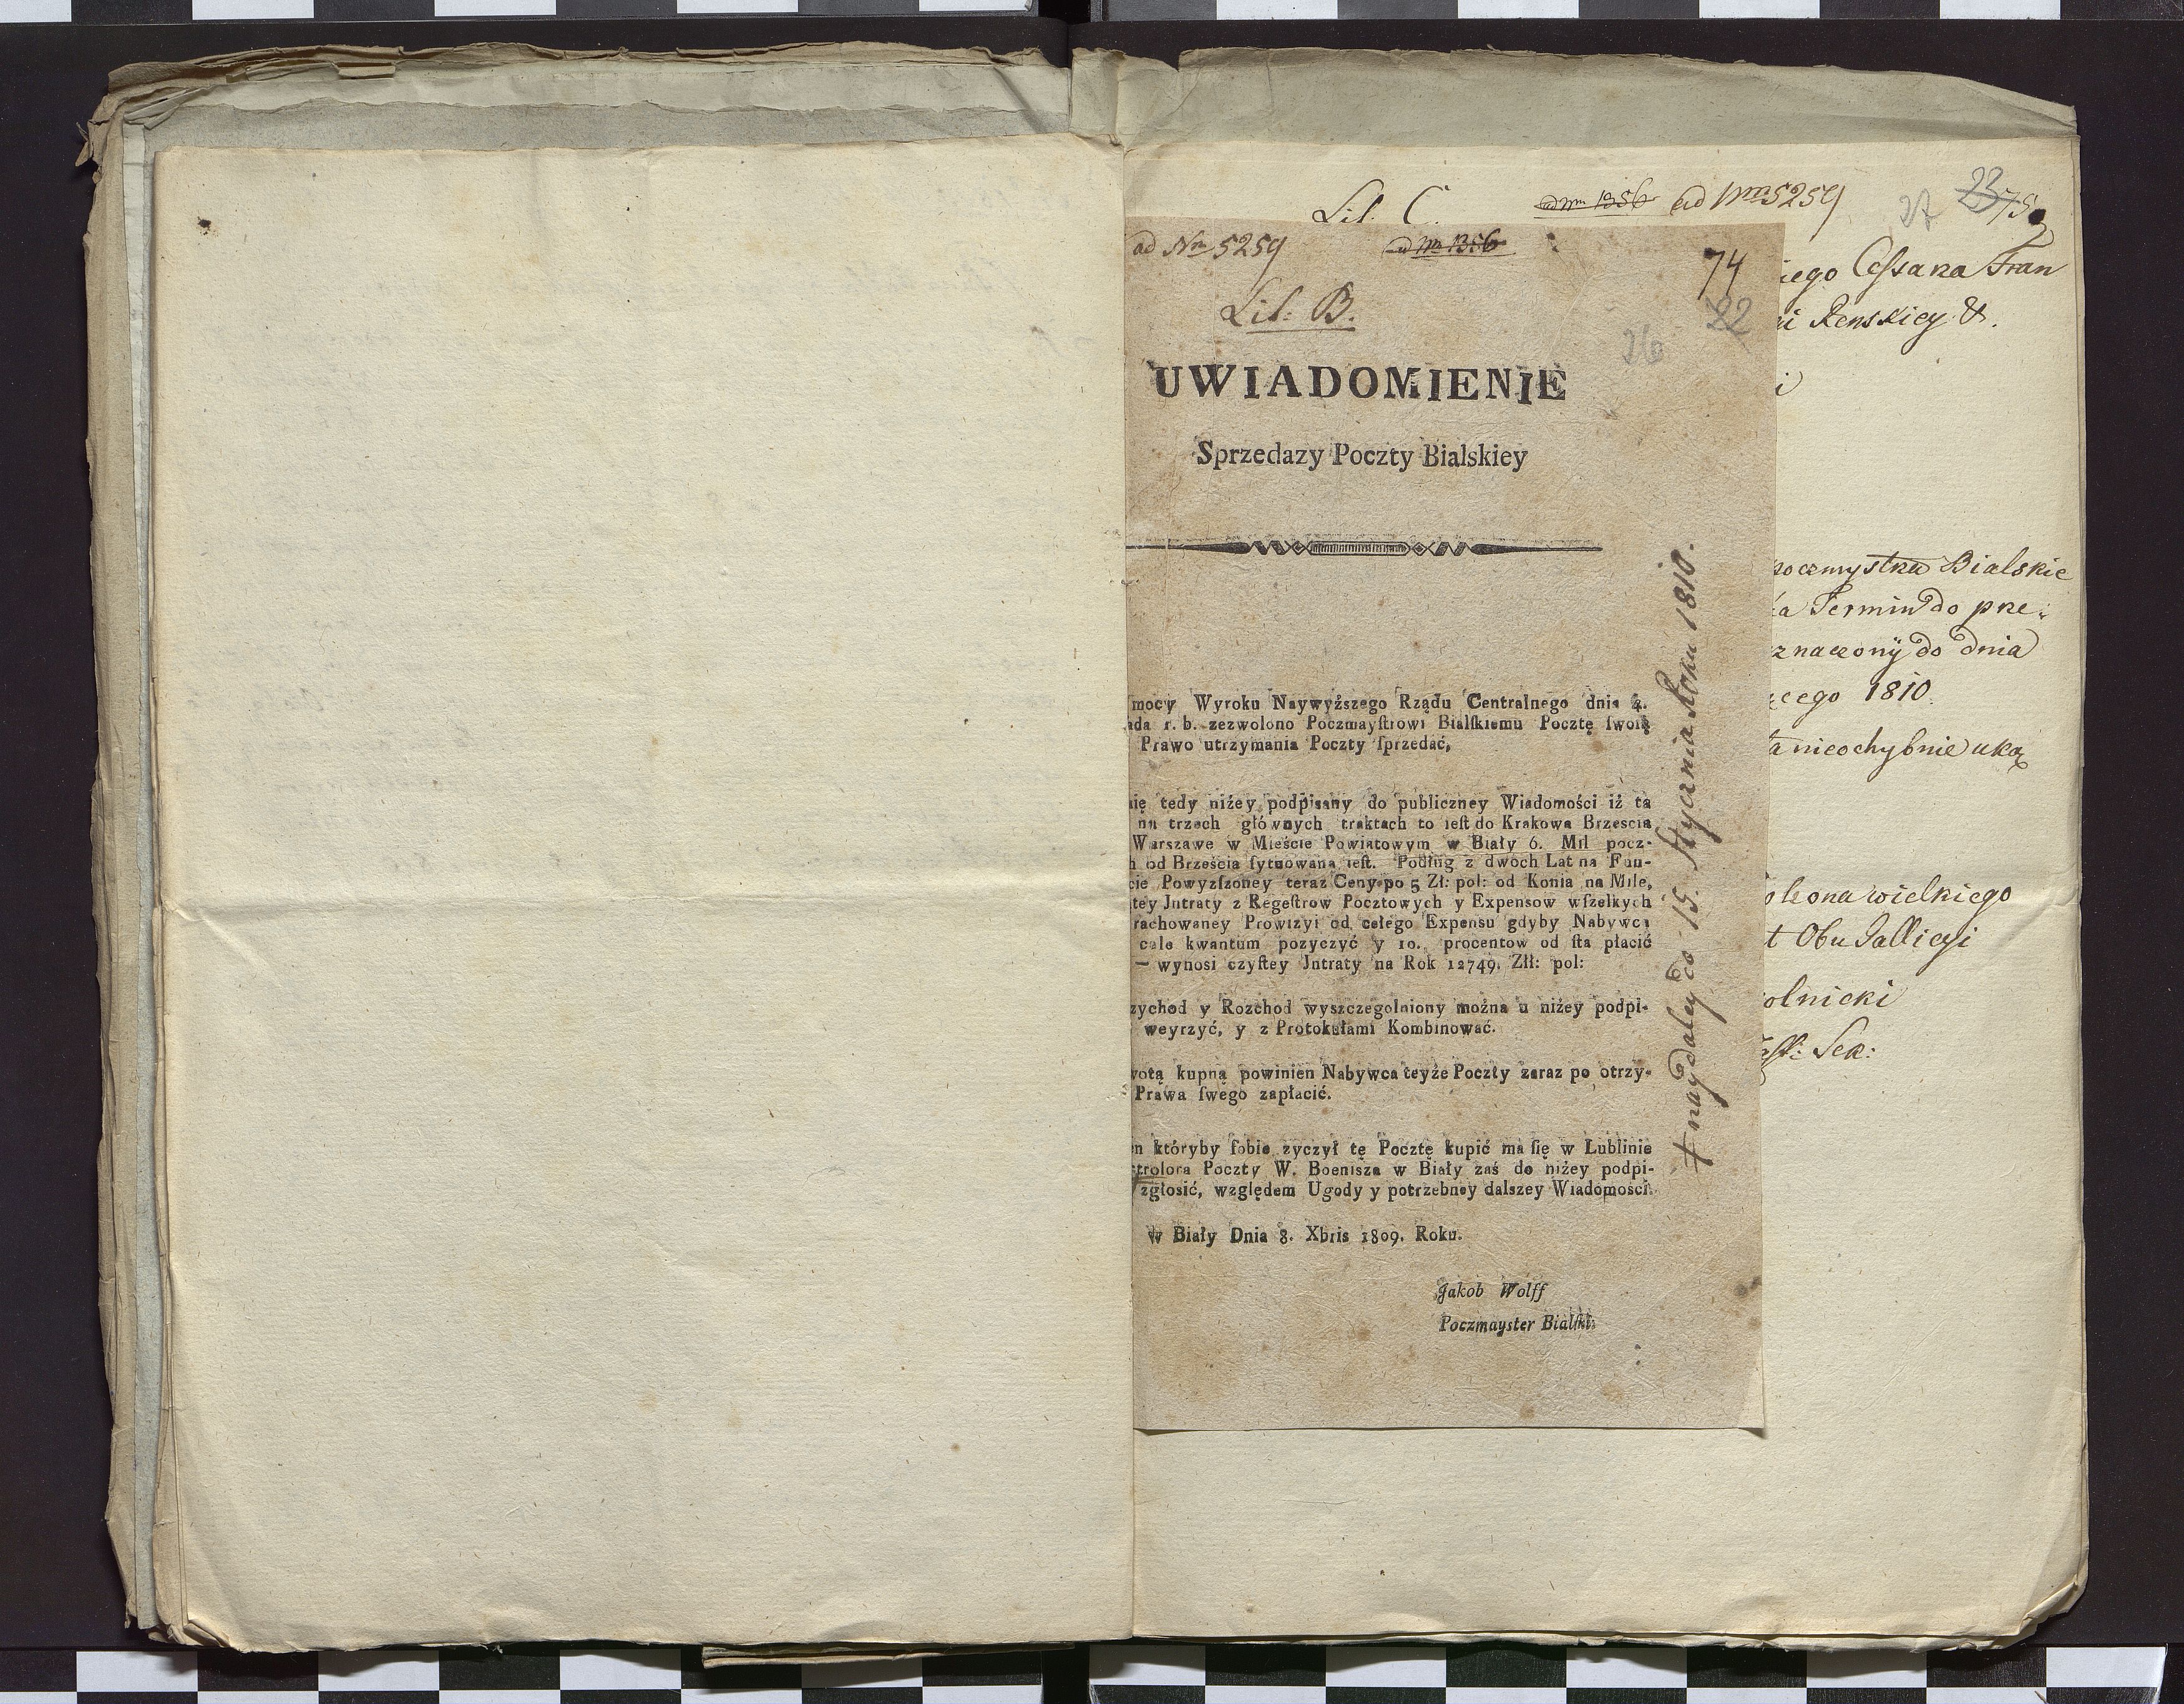 Lit. C. ad Nrm 1356 ad Nrm 5259
27 23 75
ad Nrm 5259 ad Nrm 1356
74
22
Lit: B.
26
UWIADOMIENIE
Sprzedazy Poczty Bialskiey
mocy Wyroku Naywyższego Rządu Centralnego dnia 4.
ada r. b. zezwolono Poczmayſtrowi Bialſkiemu Pocztę ſwoią
Prawo utrzymania Poczty ſprzedać,
nię tedy niżey podpisany do publiczney Wiadomości iż ta
na trzech głównych traktach to ieſt do Krakowa Brzescia
Warszawe w Mieście Powiatowym w Biały 6. Mil pocz-
h od Brześcia ſytuowana ieſt. Podług z dwoch Lat na Fun-
cie Powyzſzoney teraz Ceny po 5 Zł: pol: od Konia na Mile,
tey Jntraty z Regeſtrow Pocztowych y Expensow wſzelkych
rachowaney Prowizyi od całego Expensu gdyby Nabywca
cale kwantum pozyczyć y 10. procentow od ſta płacić
— wynosi czyſtey Jntraty na Rok 12749. Złł: pol:
zychod y Rozchod wyszczegolniony można u niżey podpi-
weyrzyć, y z Protokułami Kombinować.
wotą kupną powinien Nabywca teyże Poczty zaraz po otrzy-
Prawa ſwego zapłacić.
en któryby ſobie zyczył tę Pocztę kupić ma ſię w Lublinie
trolora Poczty W. Boenisza w Biały zaś do niżey podpi-
zgłosić, względem Ugody y potrzebney dalszey Wiadomości.
W Biały Dnia 8. Xbris 1809. Roku.
Jakob Wolff
Poczmayster Bialſki.
+ naydaley do 15. Stycznia Roku 1810.
iego Cessarza Fran
ni Renskiey &.
i
poczmystrza Bialskie
Termin do prze-
znaczony do dnia
1810
nieochybnie ukaz
oleona wielkiego
t Obu Gallicyi
olnicki
Sek: